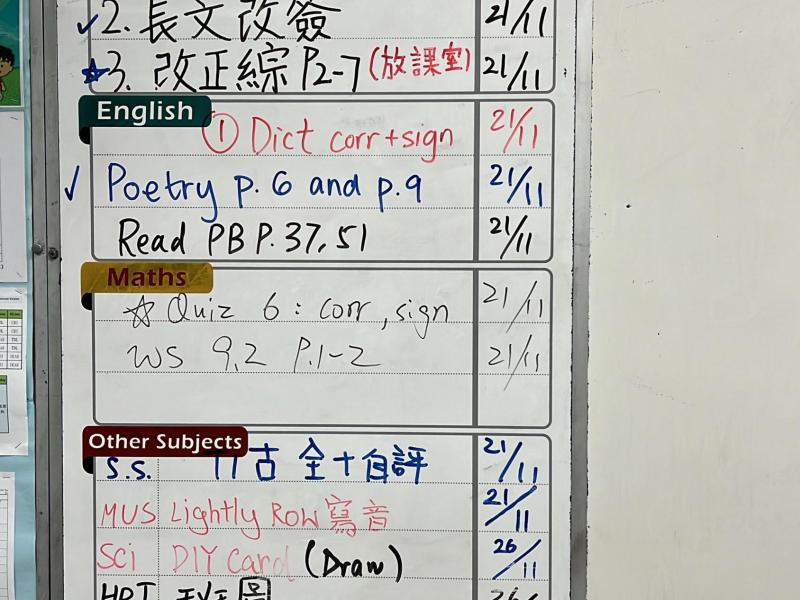 ✓2. 長文改簽 21/11
★3. 改正綜 P2-7 (放課室) 21/11
English
① Dict corr+sign 21/11
✓ Poetry p. 6 and p.9 21/11
Read PB P. 37, 51 21/11
Maths
☆ Quiz 6 : corr, sign 21/11
WS 9.2 P.1-2 21/11
Other Subjects
S.S. 古 全+自評 21/11
MUS Lightly Row 寫音 21/11
Sci DIY Card (Draw) 26/11